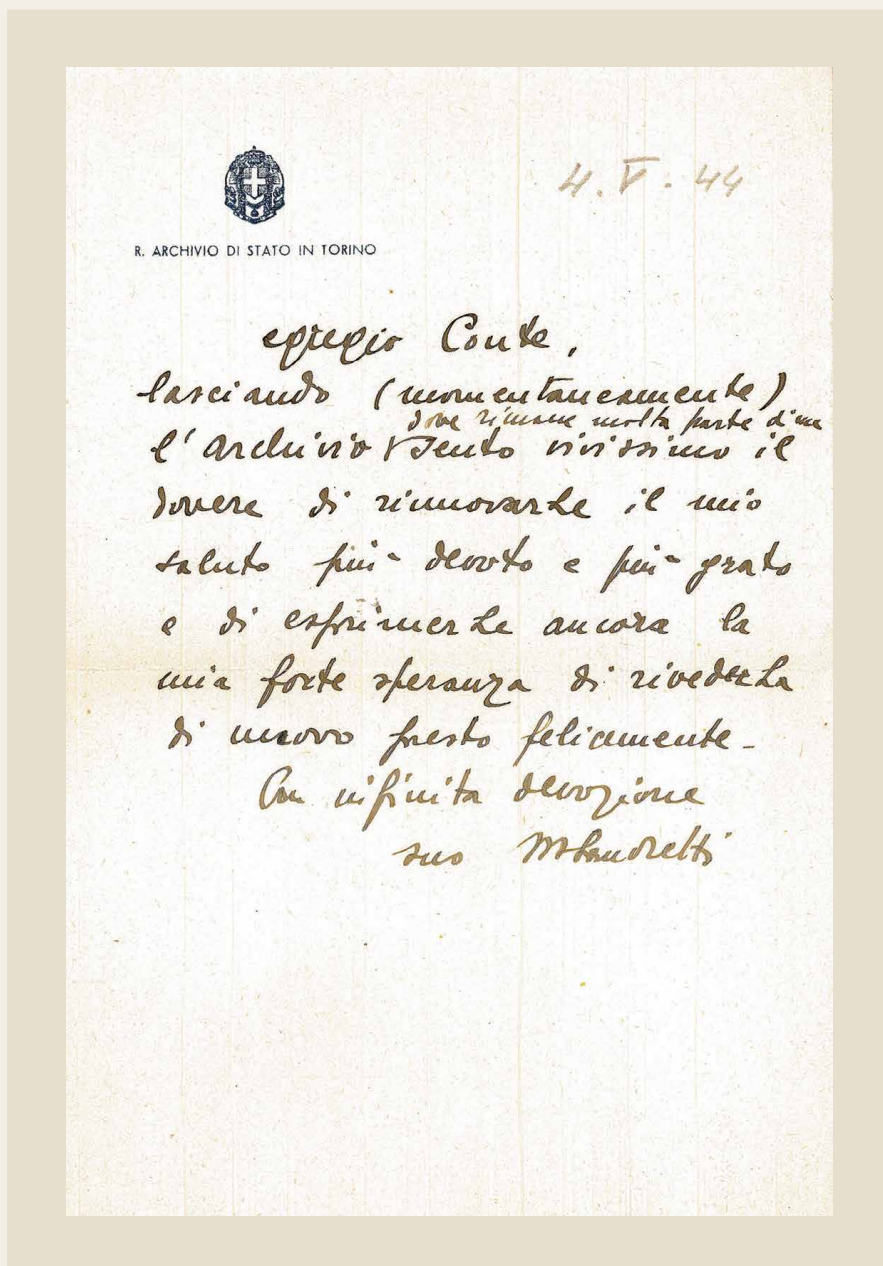 4. V. 44
R. ARCHIVIO DI STATO IN TORINO
egregio Conte,
lasciando (momentaneamente)
dove rimane molta parte di me
l'archivio sento vivissimo il
dovere di rinnovarLe il mio
saluto più devoto e più grato
e di esprimerLe ancora la
mia forte speranza di rivederLa
di nuovo presto felicemente -
Con infinita devozione
suo